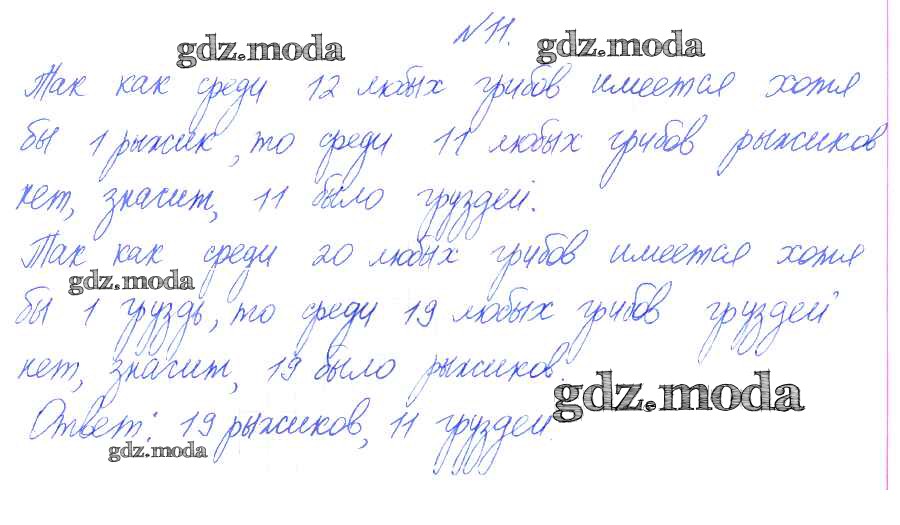 № 11.
gdz.moda gdz.moda
Так как среди 12 любых грибов имеется хотя
бы 1 рыжик, то среди 11 любых грибов рыжиков
нет, значит, 11 было груздей.
Так как среди 20 любых грибов имеется хотя
gdz.moda
бы 1 груздь, то среди 19 любых грибов груздей
нет, значит, 19 было рыжиков.
gdz.moda
Ответ: 19 рыжиков, 11 груздей.
gdz.moda